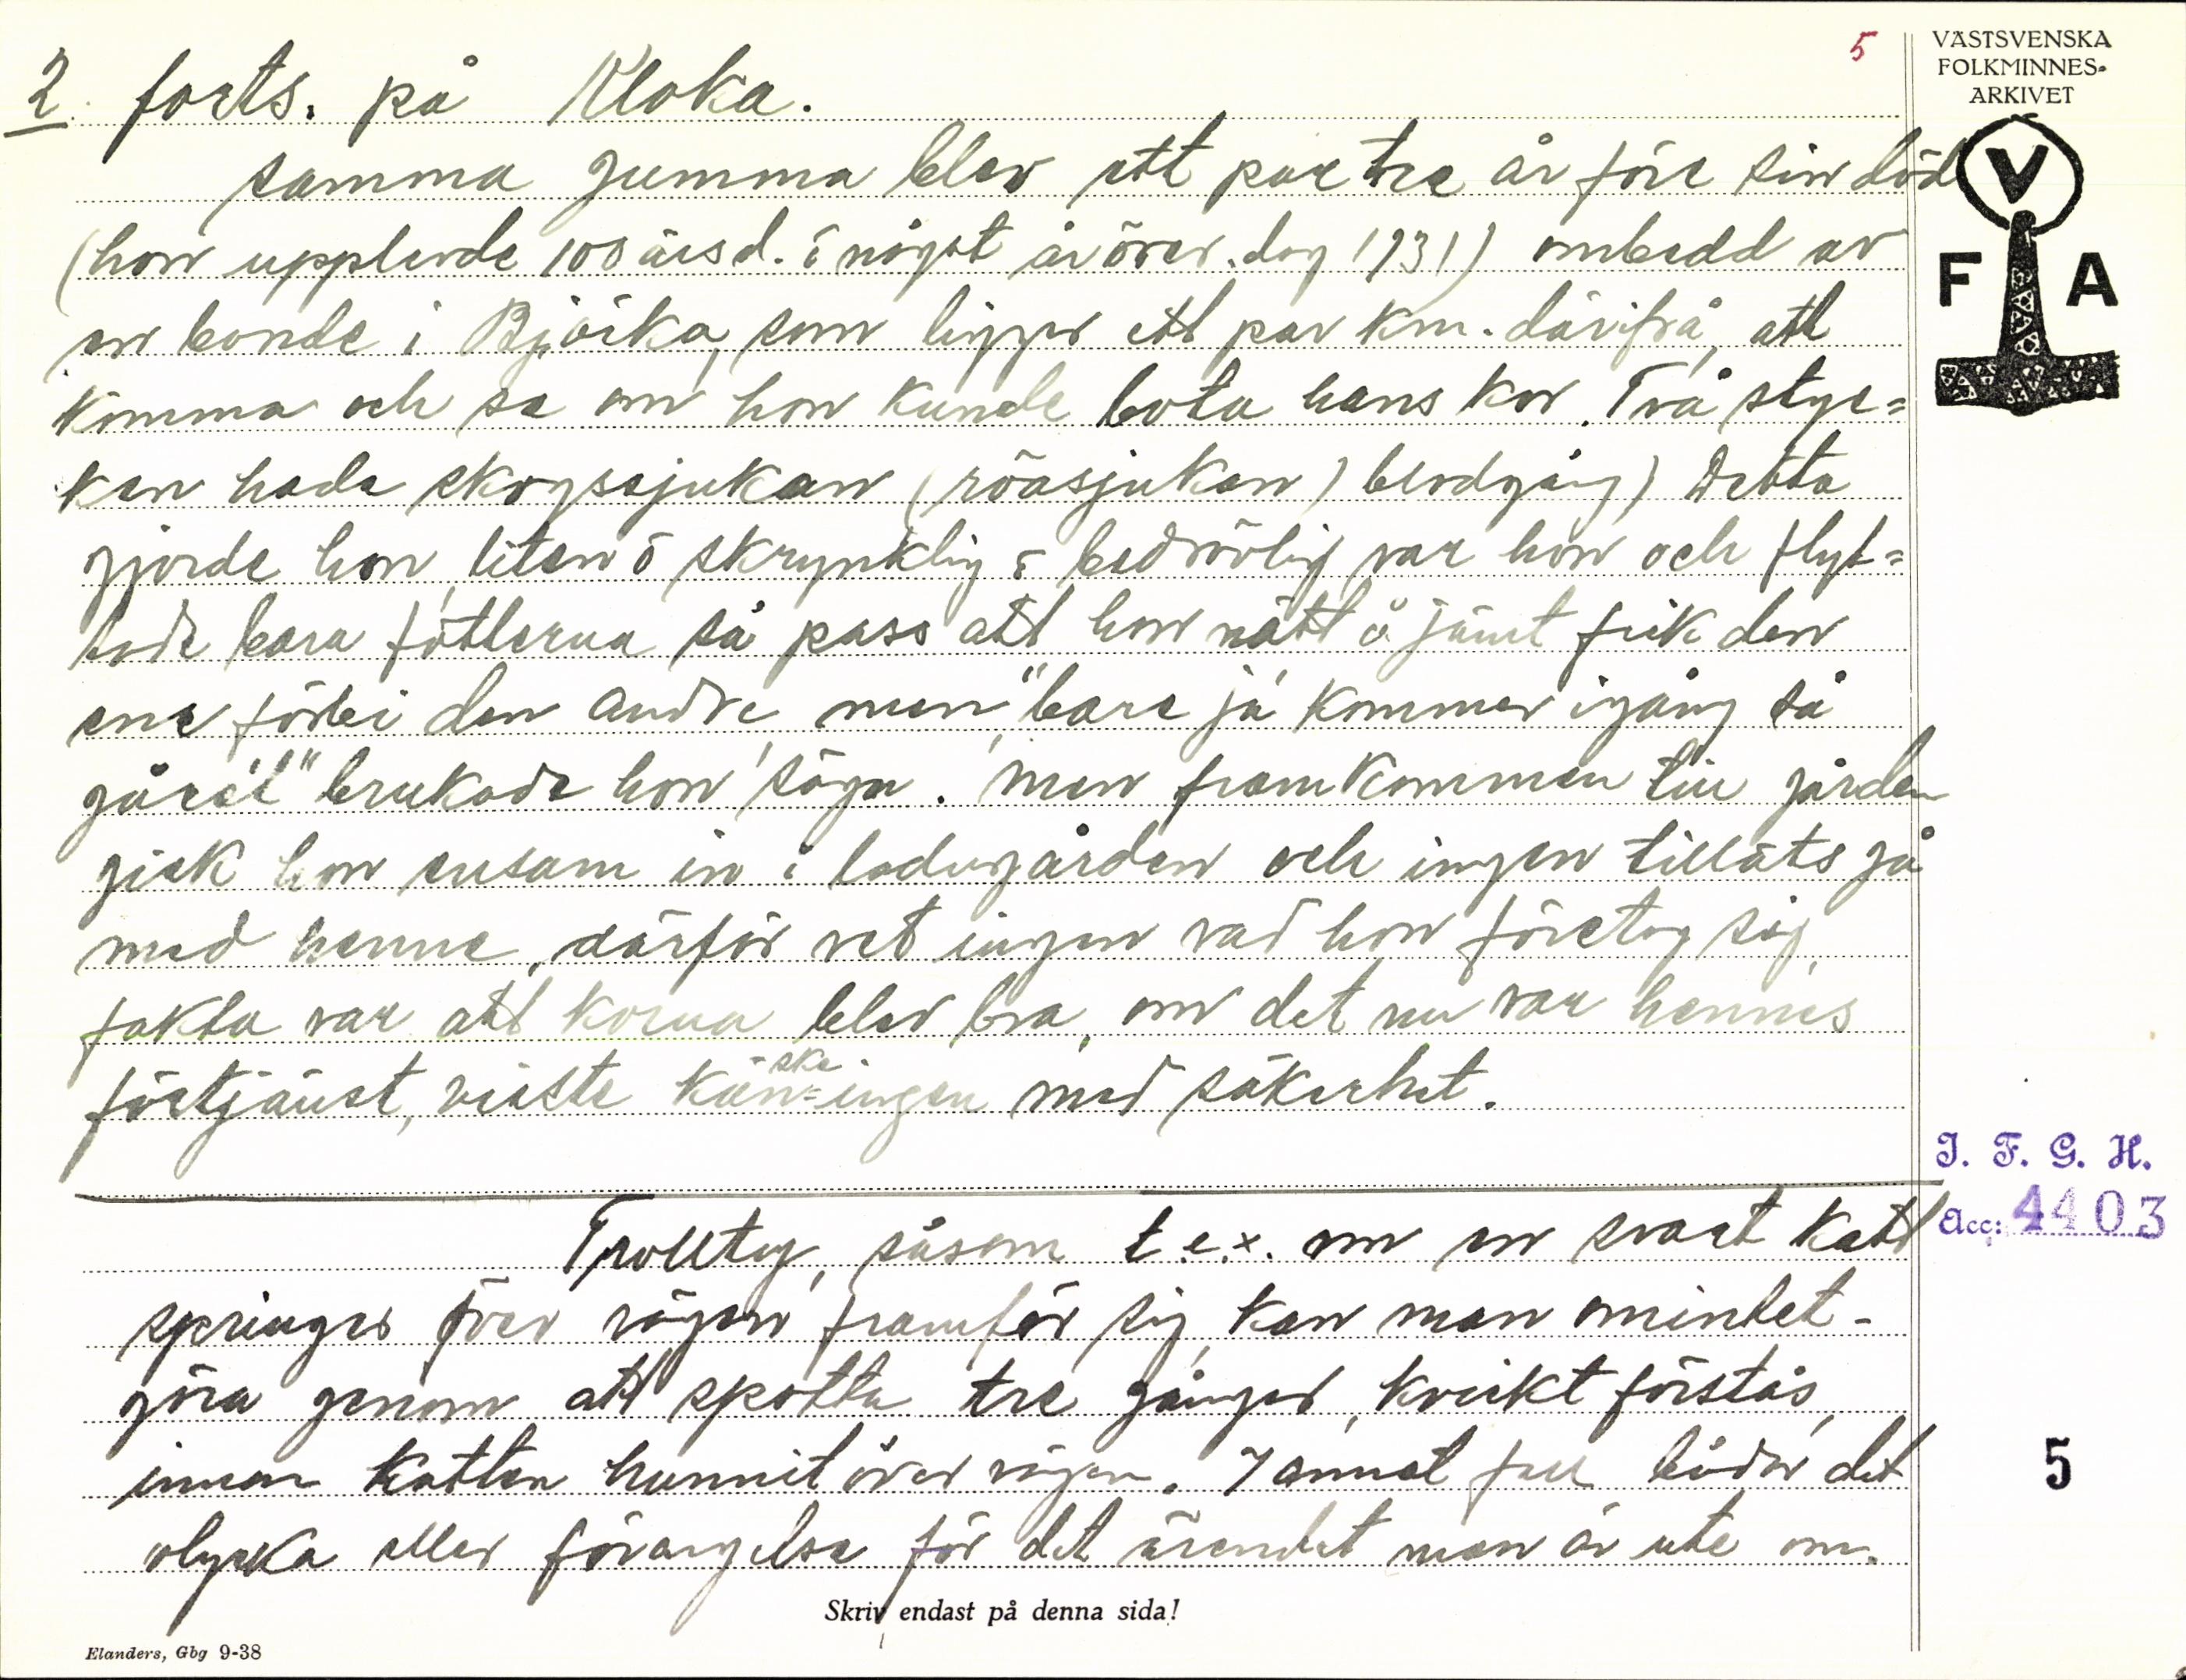 5
VÄSTSVENSKA
FOLKMINNES-
ARKIVET
V
F A
2. forts. på Kloka.
samma gumma blev ett par tre år före sin död
(hon upplevde 100 årsd. o något år över. dog 1931) ombedd av
en bonde i Björka, som ligger ett par km. därifrå, att
komma och se om hon kunde bota hans kor. Två styc=
ken hade skogssjukan (röasjukan) blodgång) Detta
gjorde hon, liten o skrynklig o bedrövlig var hon och flyt=
tade bara fötterna så pass att hon nätt å jämt fick den
ene förbi den andre, men "bare ja' kommer igång så
går'et" brukade hon säga. Men framkommen till gården
gick hon ensam in i ladugården och ingen tilläts gå
med henne, därför vet ingen vad hon företog sig,
fakta var att korna blev bra, om det nu var hennes
förtjänst, visste kan=ske ingen med säkerhet.
Trolltyg, såsom t.e.x. om en svart katt
springer över vägen framför sig, kan man omintet-
göra genom att spotta tre gånger, kvickt förstås,
innan katten hunnit över vägen. I annat fall bådar det
olycka eller förargelse för det ärendet man är ute om.
I. F. G. H.
Acc: 4403
5
Skriv endast på denna sida!
Elanders, Gbg 9-38